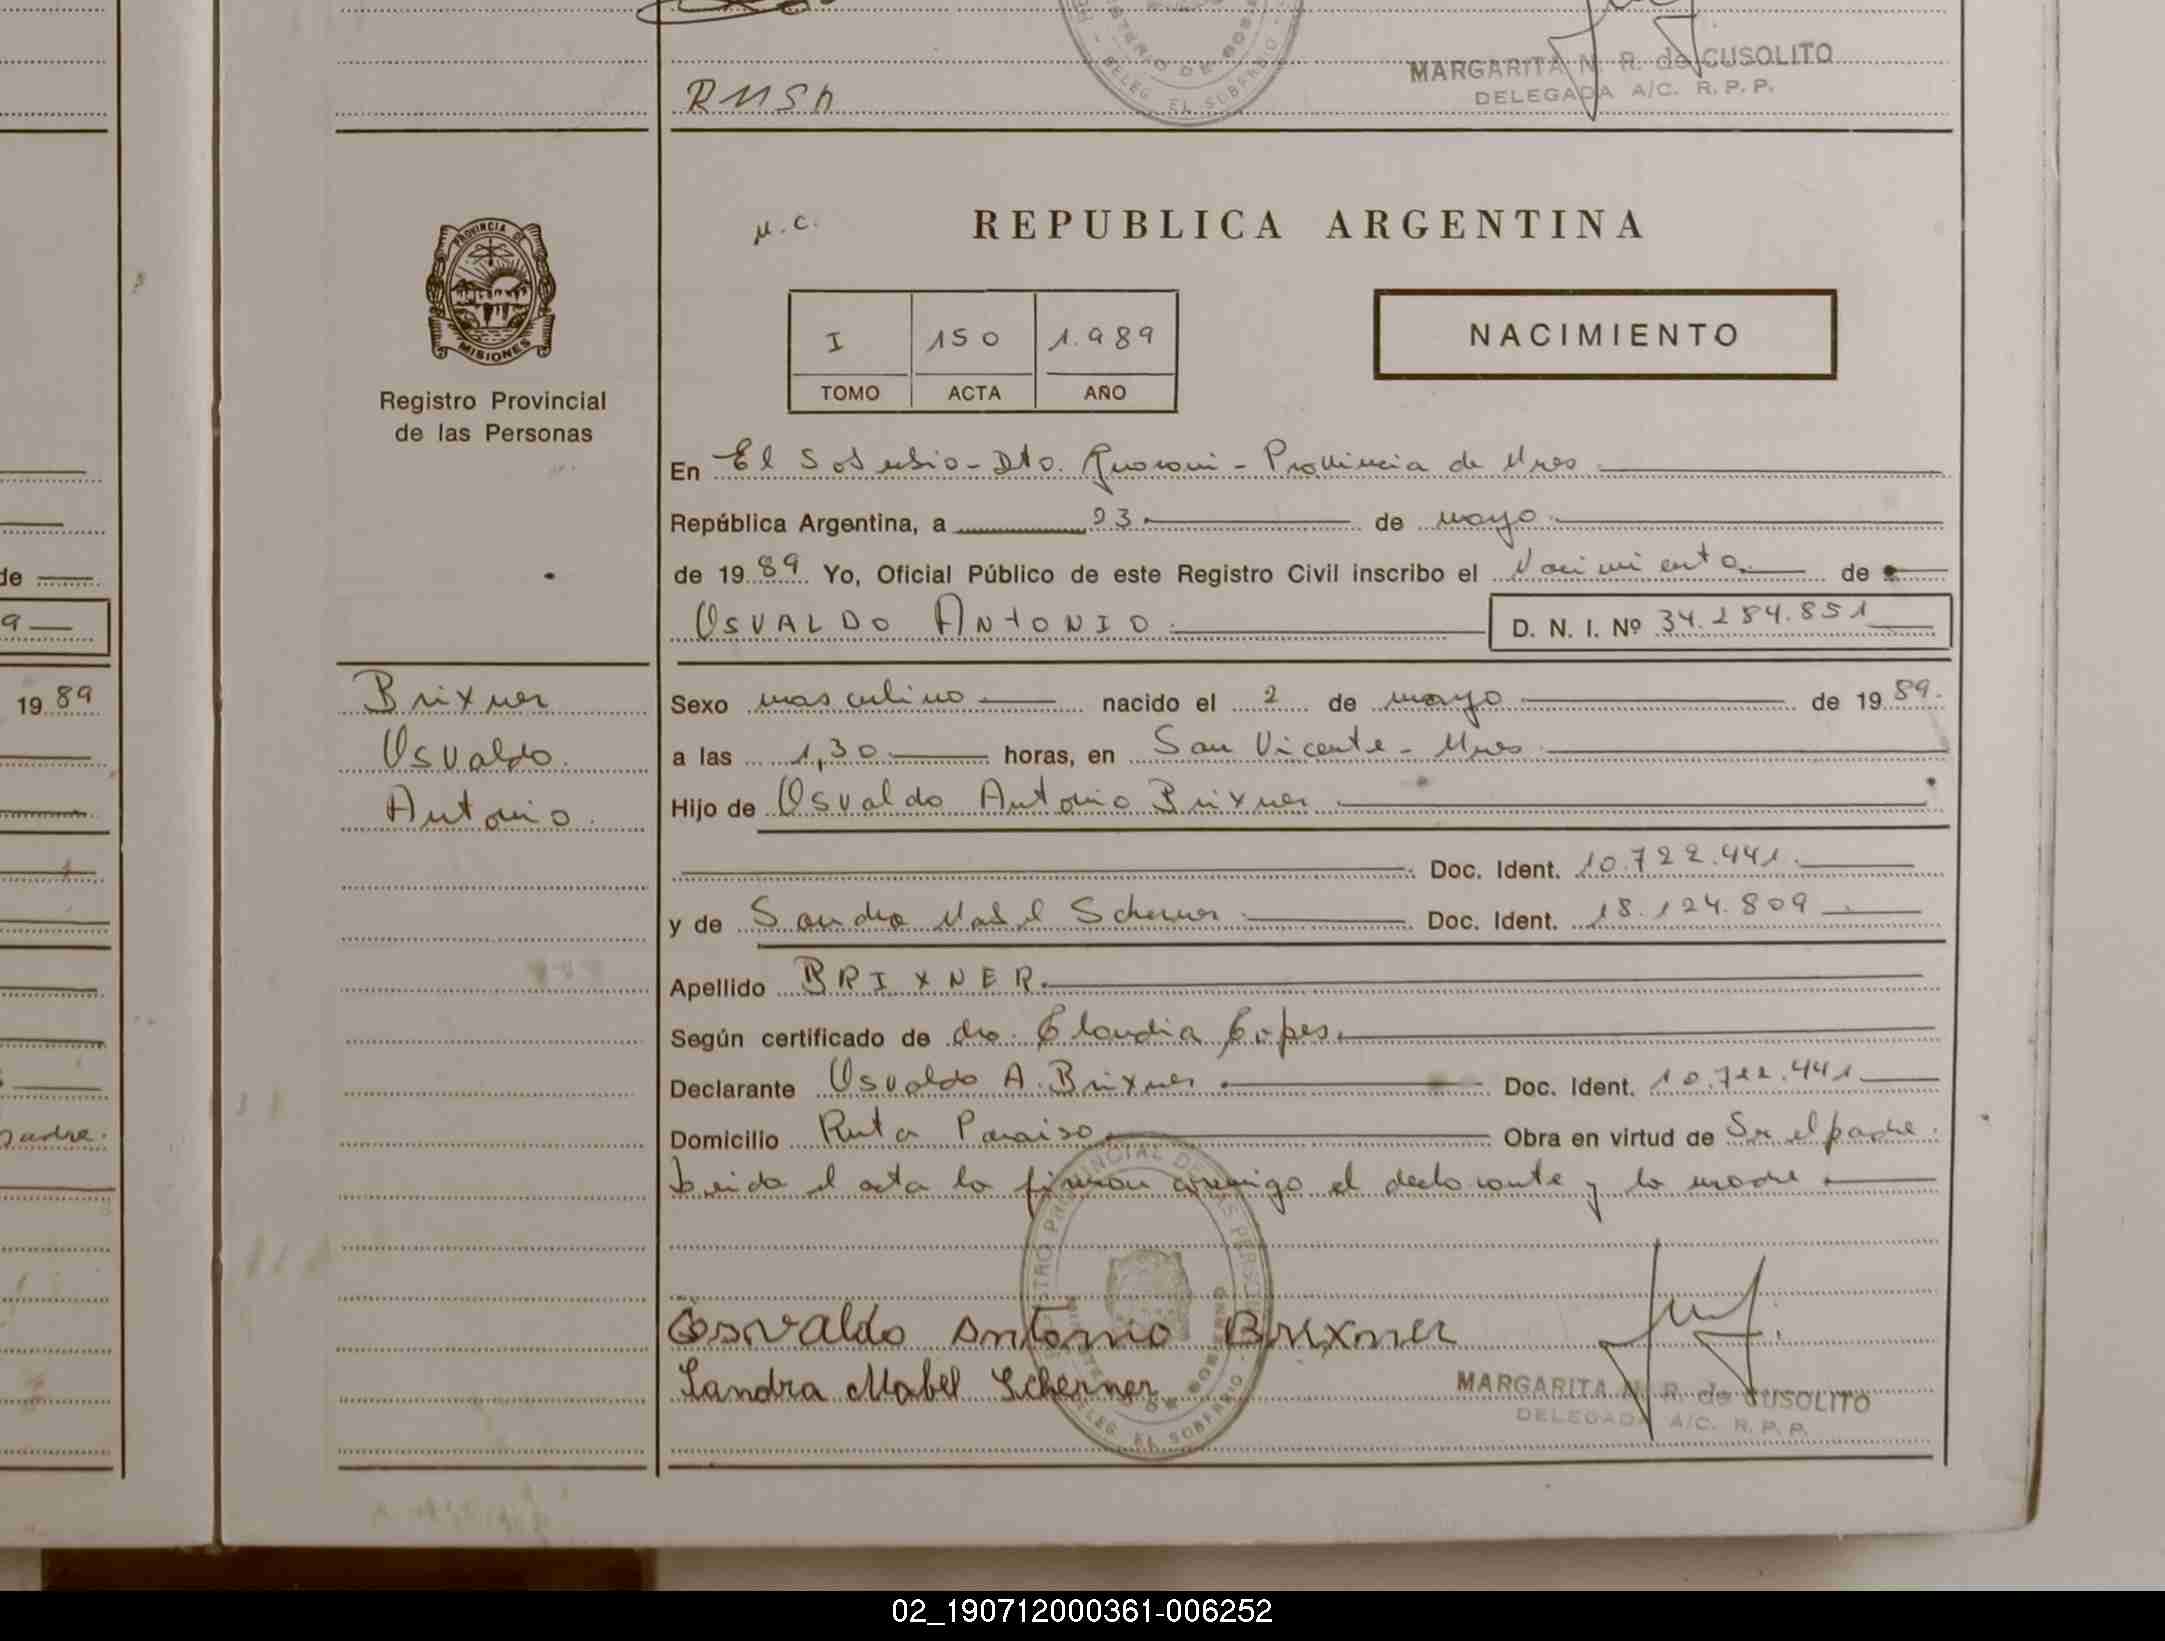 RMSA
MARGARITA N. R. de CUSOLITO
DELEGADA A/C. R. P. P.
DELEG. EL SOBERBIO
PROVINCIA DE
MISIONES
Registro Provincial
de las Personas
M.C.
REPUBLICA ARGENTINA
I 150 1.989
TOMO ACTA AÑO
NACIMIENTO
En El Soberbio - Dto. Guarani - Provincia de Mnes
República Argentina, a 23 de mayo
de 1989 Yo, Oficial Público de este Registro Civil inscribo el Nacimiento de
OSVALDO ANTONIO D. N. I. Nº 34.284.851
Brixner
Osvaldo
Antonio
Sexo masculino nacido el 2 de mayo de 1989.
a las 1,30 horas, en San Vicente - Mnes
Hijo de Osvaldo Antonio Brixner
Doc. Ident. 10.722.441
y de Sandra Mabel Scherner Doc. Ident. 18.124.809
Apellido BRIXNER
Según certificado de dra. Claudia
Declarante Osvaldo A. Brixner Doc. Ident. 10.722.441
Domicilio Ruta Paraiso Obra en virtud de Ser el padre.
Leida el acta la firman conmigo el declarante y la madre
Osvaldo Antonio Brixner
Sandra Mabel Scherner
MARGARITA N. R. de CUSOLITO
DELEGADA A/C. R. P. P.
de
1989
padre.
02_190712000361-006252